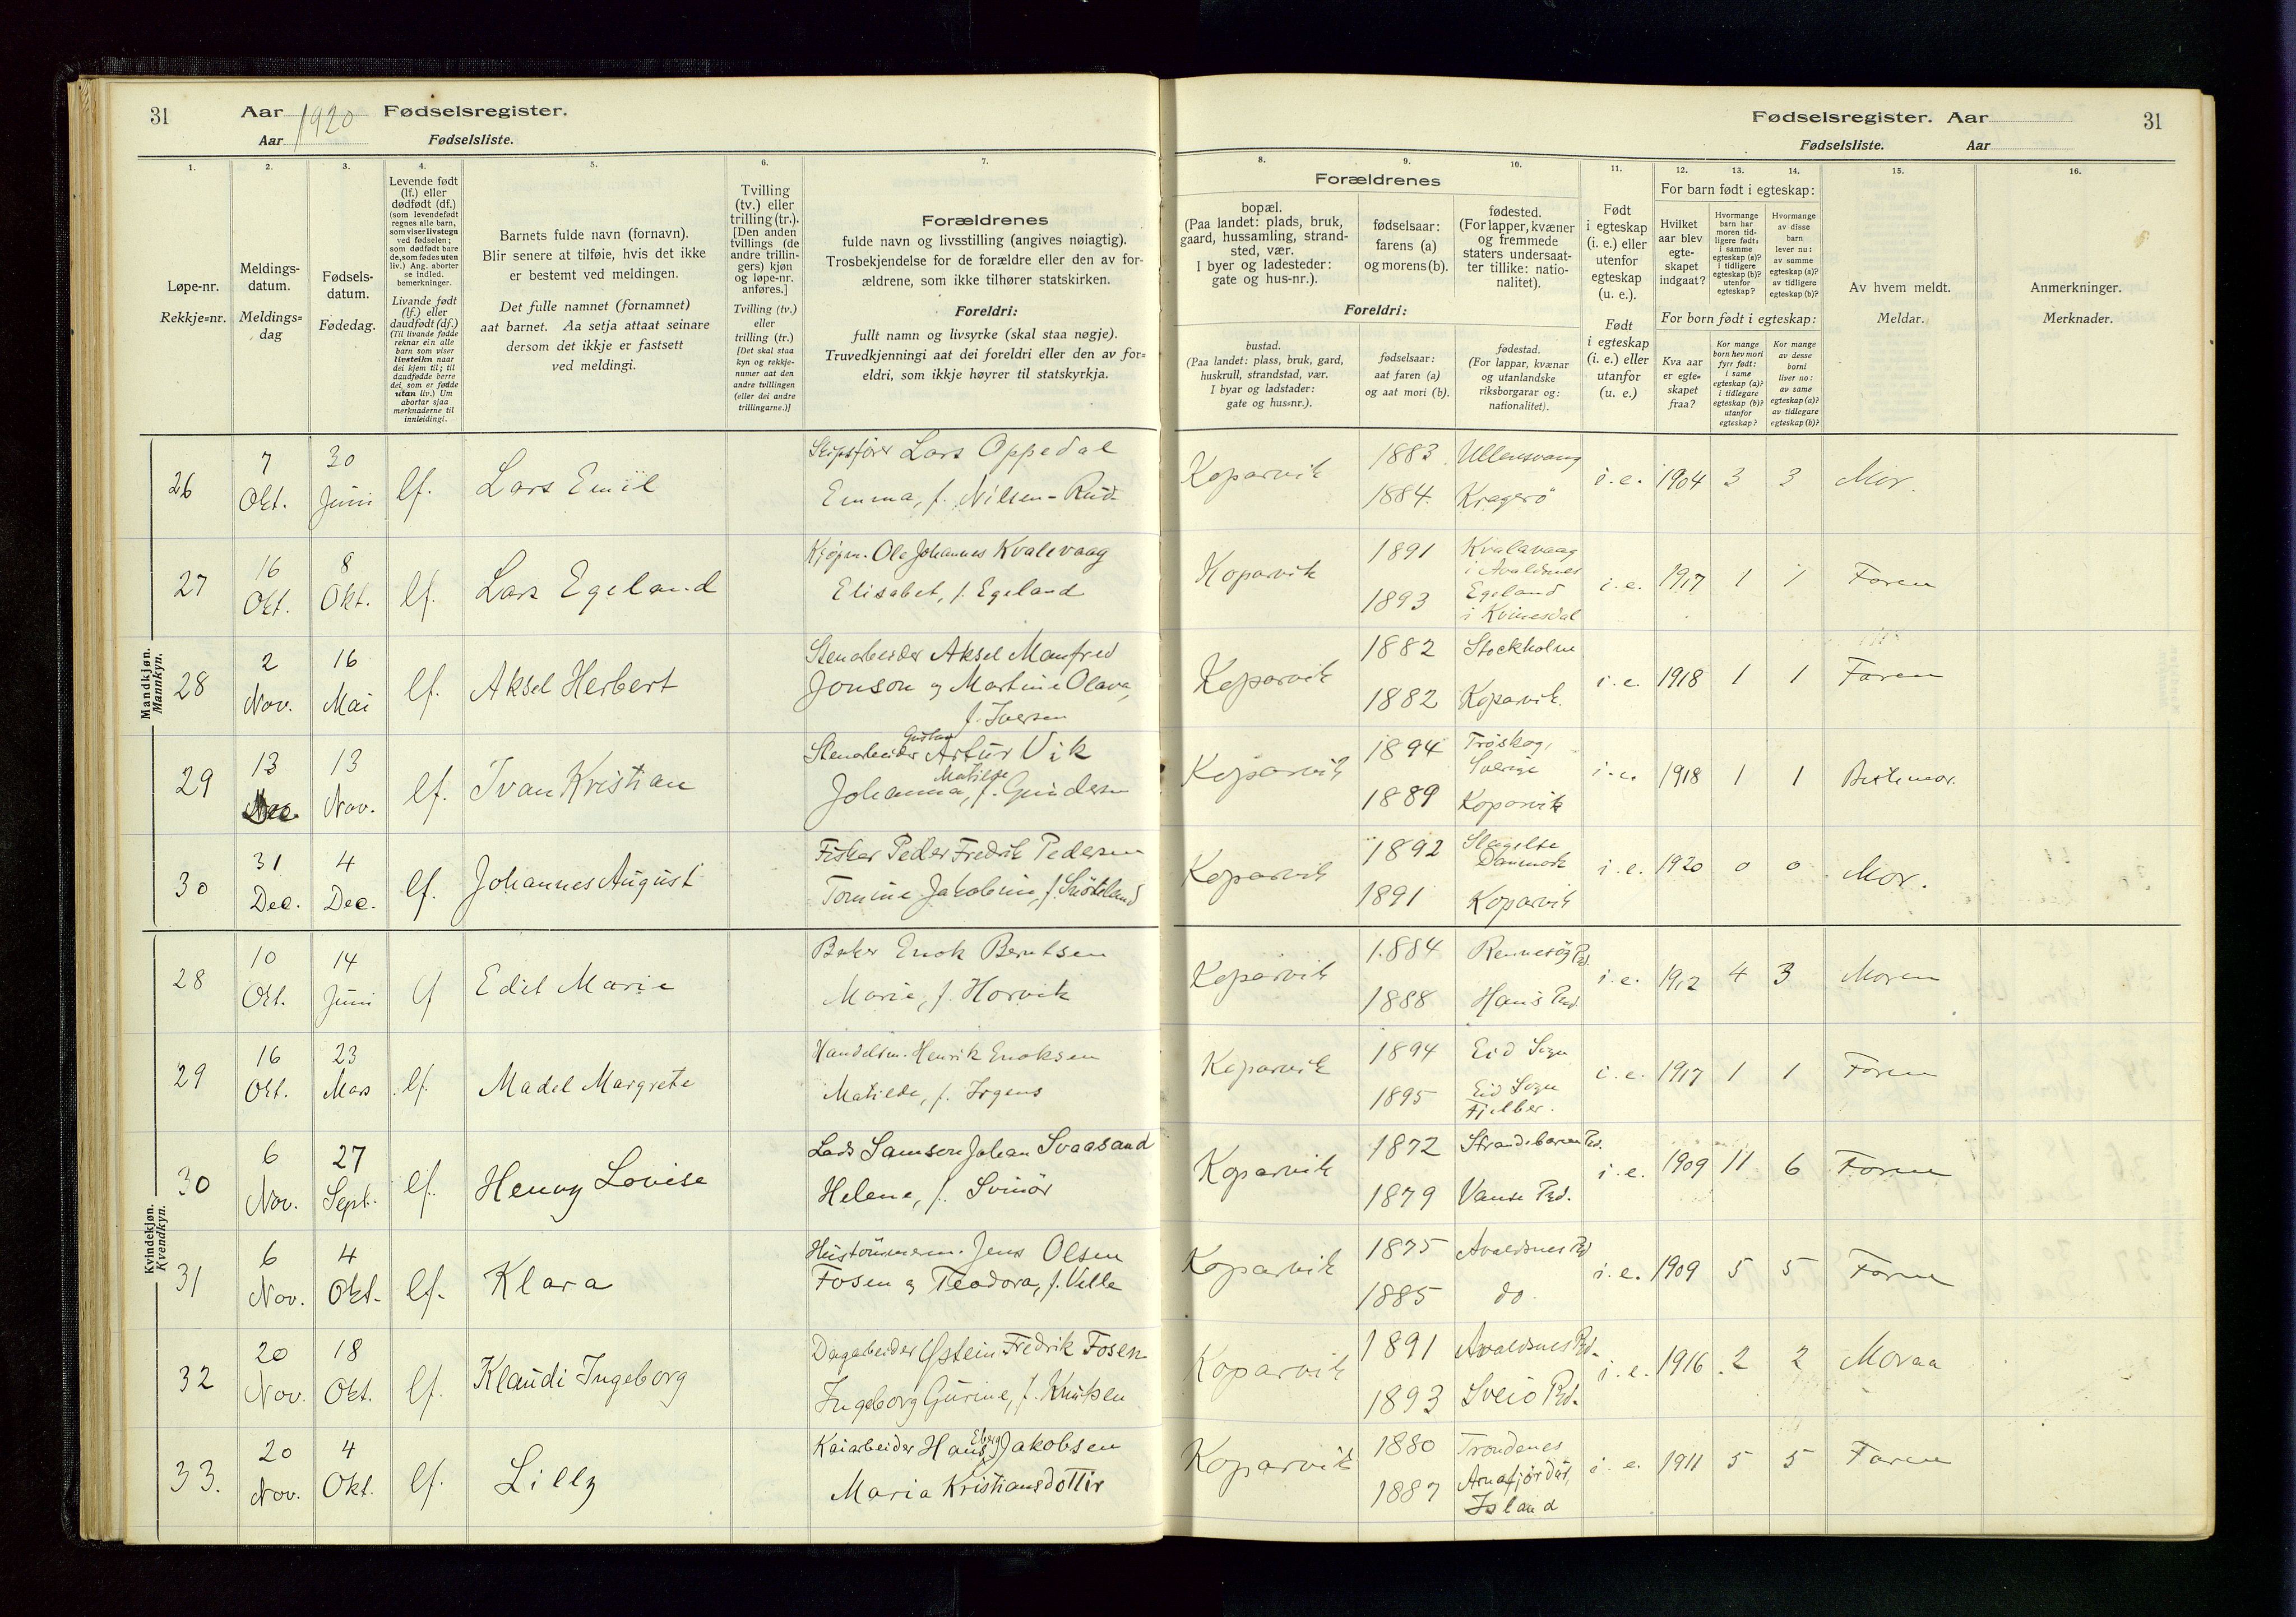 31
Aar 1920 Fødselsregister.
Aar Fødselsliste.
1.
2.
3.
4.
5.
6.
7.
Løpe-nr.
Rekkje=nr.
Meldings-
datum.
Meldings=
dag
Fødsels-
datum.
Fødedag.
Levende født
(lf.) eller
dødfødt (df.)
(som levendefødt
regnes alle barn,
som viser livstegn
ved fødselen;
som dødfødt bare
de, som fødes uten
liv.) Ang. aborter
se indled.
bemerkninger.
Livande født
(lf.) eller
daudfødt (df.)
(Til livande fødde
reknar ein alle
barn som viser
livsteikn naar
dei kjem til; til
daudfødde berre
dei, som er fødde
utan liv.) Um
abortar sjaa
merknaderne til
innleidingi.
Barnets fulde navn (fornavn).
Blir senere at tilføie, hvis det ikke
er bestemt ved meldingen.
Det fulle namnet (fornamnet)
aat barnet. Aa setja attaat seinare
dersom det ikkje er fastsett
ved meldingi.
Tvilling
(tv.) eller
trilling (tr.).
[Den anden
tvillings (de
andre trillin-
gers) kjøn
og løpe-nr.
anføres.]
Tvilling (tv.)
eller
trilling (tr.)
[Det skal staa
kyn og rekkje-
numer aat den
andre tvillingen
(eller dei andre
trillingarne.)]
Forældrenes
fulde navn og livsstilling (angives nøiagtig).
Trosbekjendelse for de forældre eller den av for-
ældrene, som ikke tilhører statskirken.
Foreldri:
fullt namn og livsyrke (skal staa nøgje).
Truvedkjenningi aat dei foreldri eller den av for=
eldri, som ikkje høyrer til statskyrkja.
Mandkjøn.
Mannkyn.
26 7 Okt. 30 Juni lf. Lars Emil
Skipsfører Lars Oppedal
Emma, f. Nilsen-Rud
27 16 Okt. 8 Okt. lf. Lars Egeland
Kjøpm. Ole Johannes Kvalevaag
Elisabet, f. Egeland
28 2 Nov. 16 Mai lf. Aksel Herbert
Stenarbeider Aksel Manfred
Jonson og Martine Olava,
f. Iversen
29 13 13 Nov. lf. Ivan Kristian
Stenarbeider Gustav Artur Vik
Johanna Matilde, f. Gundersen
30 31 Dec. 4 Dec. lf. Johannes August
Fisker Peder Fredrik Pedersen
Tomine Jakobine, f.
Kvindekjøn.
Kvendkyn.
28 10 Okt. 14 Juni lf Edit Marie
Baker Enok Berntsen
Marie, f. Horvik
29 16 Okt. 23 Mars lf. Madel Margrete
Handelsm. Henrik Enoksen
Matilde, f. Irgens
30 6 Nov. 27 Sept. lf. Henny Lovise
Lods Samson Johan Svaasand
Helene, f. Svinör
31 6 Nov. 4 Okt. lf. Klara
Hustömmerm. Jens Olsen
Fosen og Teodora, f. Velle
32 20 Nov. 18 Okt. lf. Klaudi Ingeborg
Dagarbeider Østein Fredrik Fosen
Ingeborg Gurine, f. Knutsen
33. 20 Nov. 4 Okt. lf. Lilly
Kaiarbeider Hans Eberg Jakobsen
Maria Kristiansdottir
Fødselsregister. Aar 31
Fødselsliste. Aar
8.
9.
10.
11.
12.
13.
14.
15.
16.
Forældrenes
bopæl.
(Paa landet: plads, bruk,
gaard, hussamling, strand-
sted, vær.
I byer og ladesteder:
gate og hus-nr.).
fødselsaar:
farens (a)
og morens (b).
fødested.
(For lapper, kvæner
og fremmede
staters undersaat-
ter tillike: natio-
nalitet).
Foreldri:
bustad.
(Paa landet: plass, bruk, gard,
huskrull, strandstad, vær.
I byar og ladstader:
gate og hus=nr.).
fødselsaar:
aat faren (a)
og aat mori (b).
fødestad.
(For lappar, kvænar
og utanlandske
riksborgarar og:
nationalitet).
Født
i egteskap
(i. e.) eller
utenfor
egteskap
(u. e.).
Født
i egteskap
(i. e.) eller
utanfor
(u. e.)
For barn født i egteskap:
Hvilket
aar blev
egte-
skapet
indgaat?
Hvormange
barn har
moren tid-
ligere født:
i samme
egteskap (a)?
i tidligere
egteskap (b)?
utenfor
egteskap?
Hvormange
av disse
barn
lever nu:
av samme
egteskap (a)?
av tidligere
egteskap (b)?
For born født i egteskap:
Kva aar
er egte=
skapet
fraa?
Kor mange
born hev mori
fyrr født:
i same
egteskap (a)?
i tidlegare
egteskap (b)?
utanfor
egteskap?
Kor mange
av desse
borni
liver no:
av same
egteskap (a)?
av tidlegare
egteskap (b)?
Av hvem meldt.
Meldar.
Anmerkninger.
Merknader.
Koparvik 1883 Ullensvang i. e. 1904 3 3 Mor.
1884. Kragerö
Koparvik 1891 Kvalavaag i Avaldsnes i. e. 1917 1 1 Faren
1893 Egeland i Kvinesdal
Koparvik 1882 Stockholm i. e. 1918 1 1 Faren
1882 Koparvik.
Koparvik 1894 Tröskog, Sverige i. e. 1918 1 1 Bestemor.
1889 Koparvik
Koparvik 1892 Slagelse Danmark i. e. 1920 0 0 Mor.
1891 Koparvik
Koparvik 1884 Rennesöy Pd. i. e. 1912 4 3 Moren
1888 Pd.
Koparvik 1894 Eid Sogn i. e. 1917 1 1 Faren
1895 Eid Sogn Fjelber.
Koparvik 1872 Strandebarm Pd. i. e. 1909 11 6 Faren
1879 Vanse Pd.
Koparvik 1875 Avaldsnes Pd i. e. 1909 5 5 Faren
1885 do.
Koparvik 1891 Avaldsnes Pd. i. e. 1916 2 2 Moraa
1893 Sveio Pd.
Koparvik 1880 Trondenes i. e. 1911 5 5 Faren
1887 Arnafjördur, Island